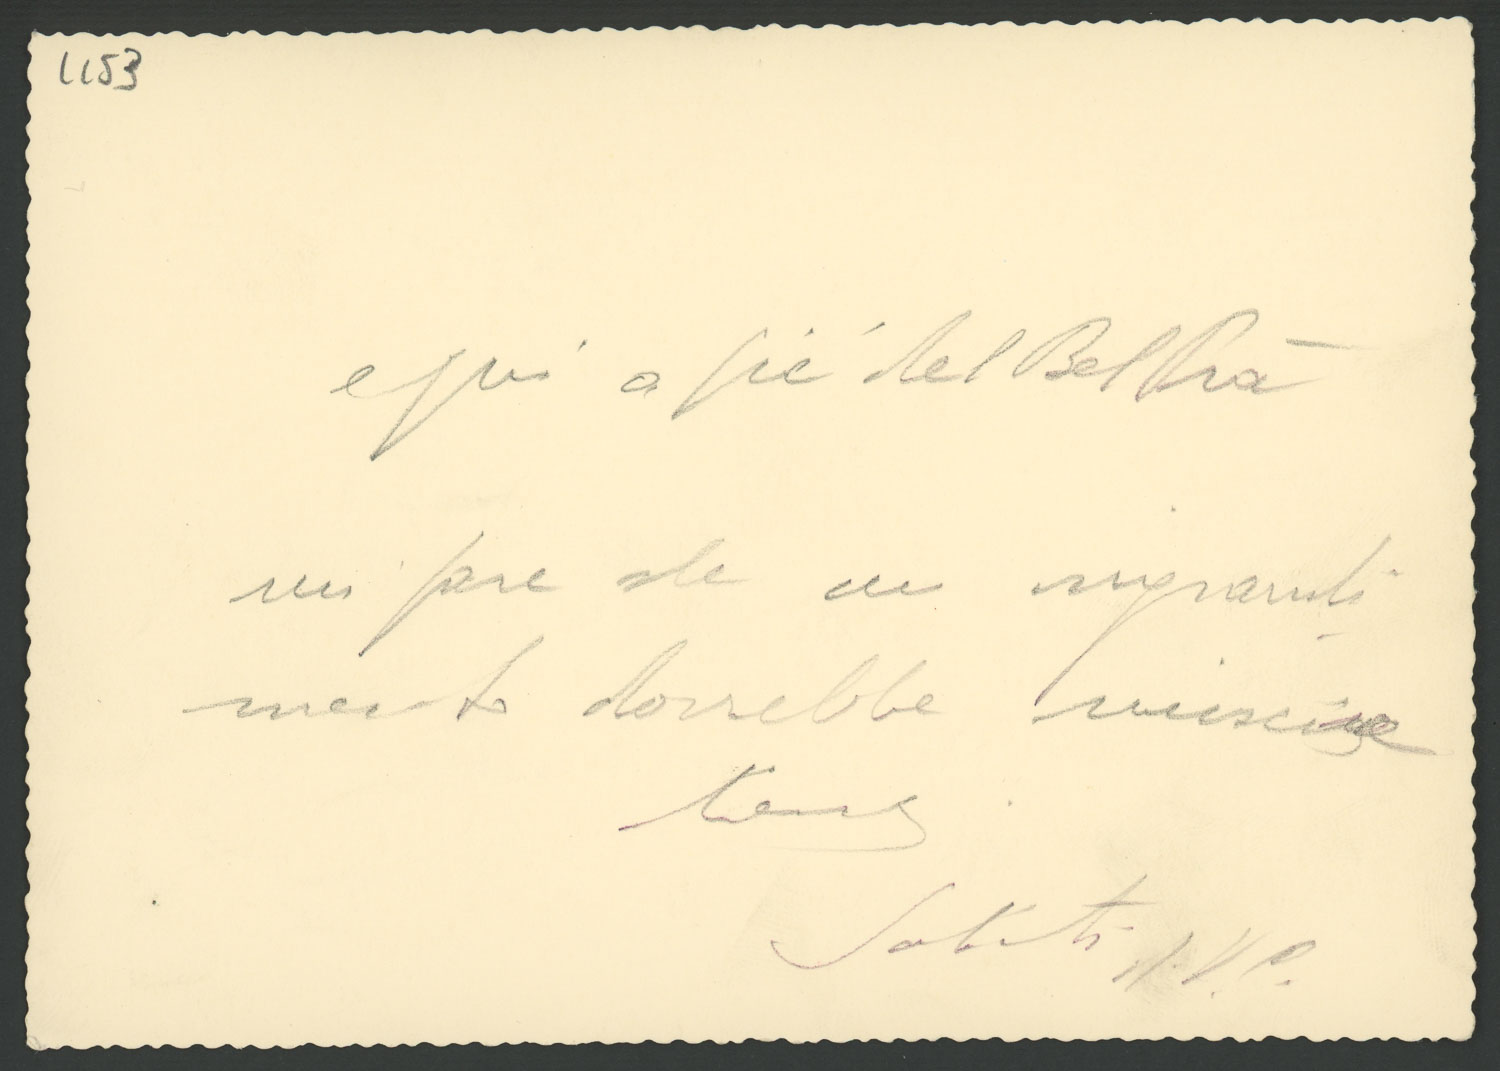 1153
e poi a pié del Bel Prà
mi pare che un ingrandi
mento dovrebbe riuscire
Saluti N.V.P.